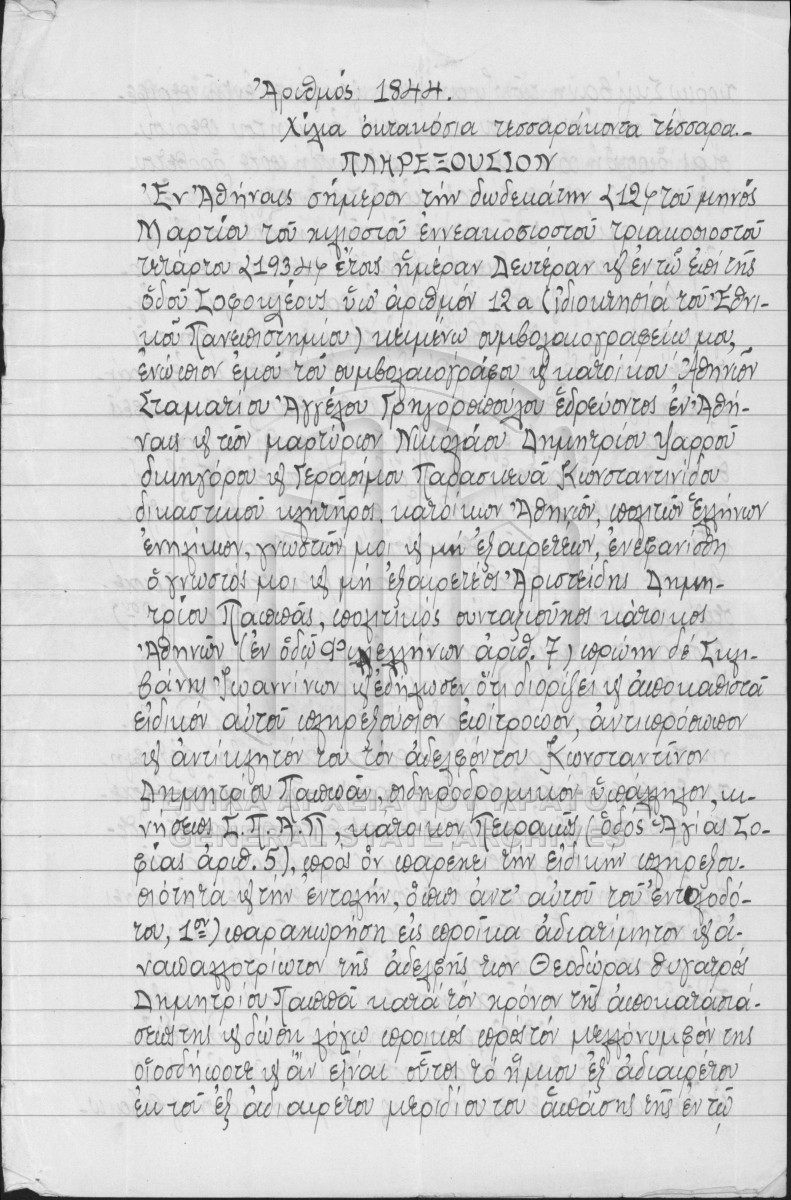 Ἀριθμός 1844.
Χίλια ὀκτακόσια τεσσαράκοντα τέσσαρα.-
ΠΛΗΡΕΞΟΥΣΙΟΝ
Ἐν Ἀθήναις σήμερον τήν δωδεκάτην (12) τοῦ μηνός
Μαρτίου τοῦ χιλιοστοῦ ἐννεακοσιοστοῦ τριακοσιοστοῦ
τετάρτου (1934) ἔτους ἡμέραν Δευτέραν κ ἐν τῷ ἐπί τῆς
ὁδοῦ Σοφοκλέους ὑπ' ἀριθμόν 12α (ἰδιοκτησία τοῦ Ἐθνι-
κοῦ Πανεπιστημίου) κειμένῳ συμβολαιογραφείῳ μου,
ἐνώπιον ἐμοῦ τοῦ συμβολαιογράφου κ κατοίκου Ἀθηνῶν
Σταματίου Ἀγγέλου Γρηγοροπούλου ἑδρεύοντος ἐν Ἀθή-
ναις κ τῶν μαρτύρων Νικολάου Δημητρίου Ψαρροῦ
δικηγόρου κ Γερασίμου Παρασκευᾶ Κωνσταντινίδου
δικαστικοῦ κλητῆρος, κατοίκων Ἀθηνῶν, πολιτῶν Ἑλλήνων
ἐνηλίκων, γνωστῶν μοι κ μή ἐξαιρετέων, ἐνεφανίσθη
ὁ γνωστός μοι κ μή ἐξαιρετέος Ἀριστείδης Δημη-
τρίου Παππᾶς, πολιτικός συνταξιοῦχος κάτοικος
Ἀθηνῶν (ἐν ὁδῷ Φιλελλήνων ἀριθ. 7) πρώην δέ Σιλι-
βάνης Ἰωαννίνων κ ἐδήλωσεν ὅτι διορίζει κ ἀποκαθιστᾶ
εἰδικόν αὐτοῦ πληρεξούσιον ἐπίτροπον, ἀντιπρόσωπον
κ ἀντίκλητόν του τόν ἀδελφόν του Κωνσταντῖνον
Δημητρίου Παππᾶν, σιδηροδρομικόν ὑπάλληλον, κι-
νήσεως Σ.Π.Α.Π, κάτοικον Πειραιῶς (ὁδός Ἁγίας Σο-
φίας ἀριθ. 5), πρός ὅν παρέχει τήν εἰδικήν πληρεξου-
σιότητα κ τήν ἐντολήν, ὅπως ἀντ' αὐτοῦ τοῦ ἐντολοδό-
του, 1ον) παραχωρήσῃ εἰς προῖκα ἀδιατίμητον κ ἀ-
ναπαλλοτρίωτον τῆς ἀδελφῆς των Θεοδώρας θυγατρός
Δημητρίου Παππᾶ κατά τόν χρόνον τῆς ἀποκαταστά-
σεώς της κ δώσῃ λόγῳ προικός πρός τόν μελλόνυμφόν της
οἱοσδήποτε κ ἄν εἶναι οὗτος τό ἥμισυ ἐξ ἀδιαιρέτου
ἐκ τοῦ ἐξ ἀδιαιρέτου μεριδίου του ἁπάσης τῆς ἐν τῷ
ΓΕΝΙΚΑ ΑΡΧΕΙΑ ΤΟΥ ΚΡΑΤΟΥΣ
GENERAL STATE ARCHIVES